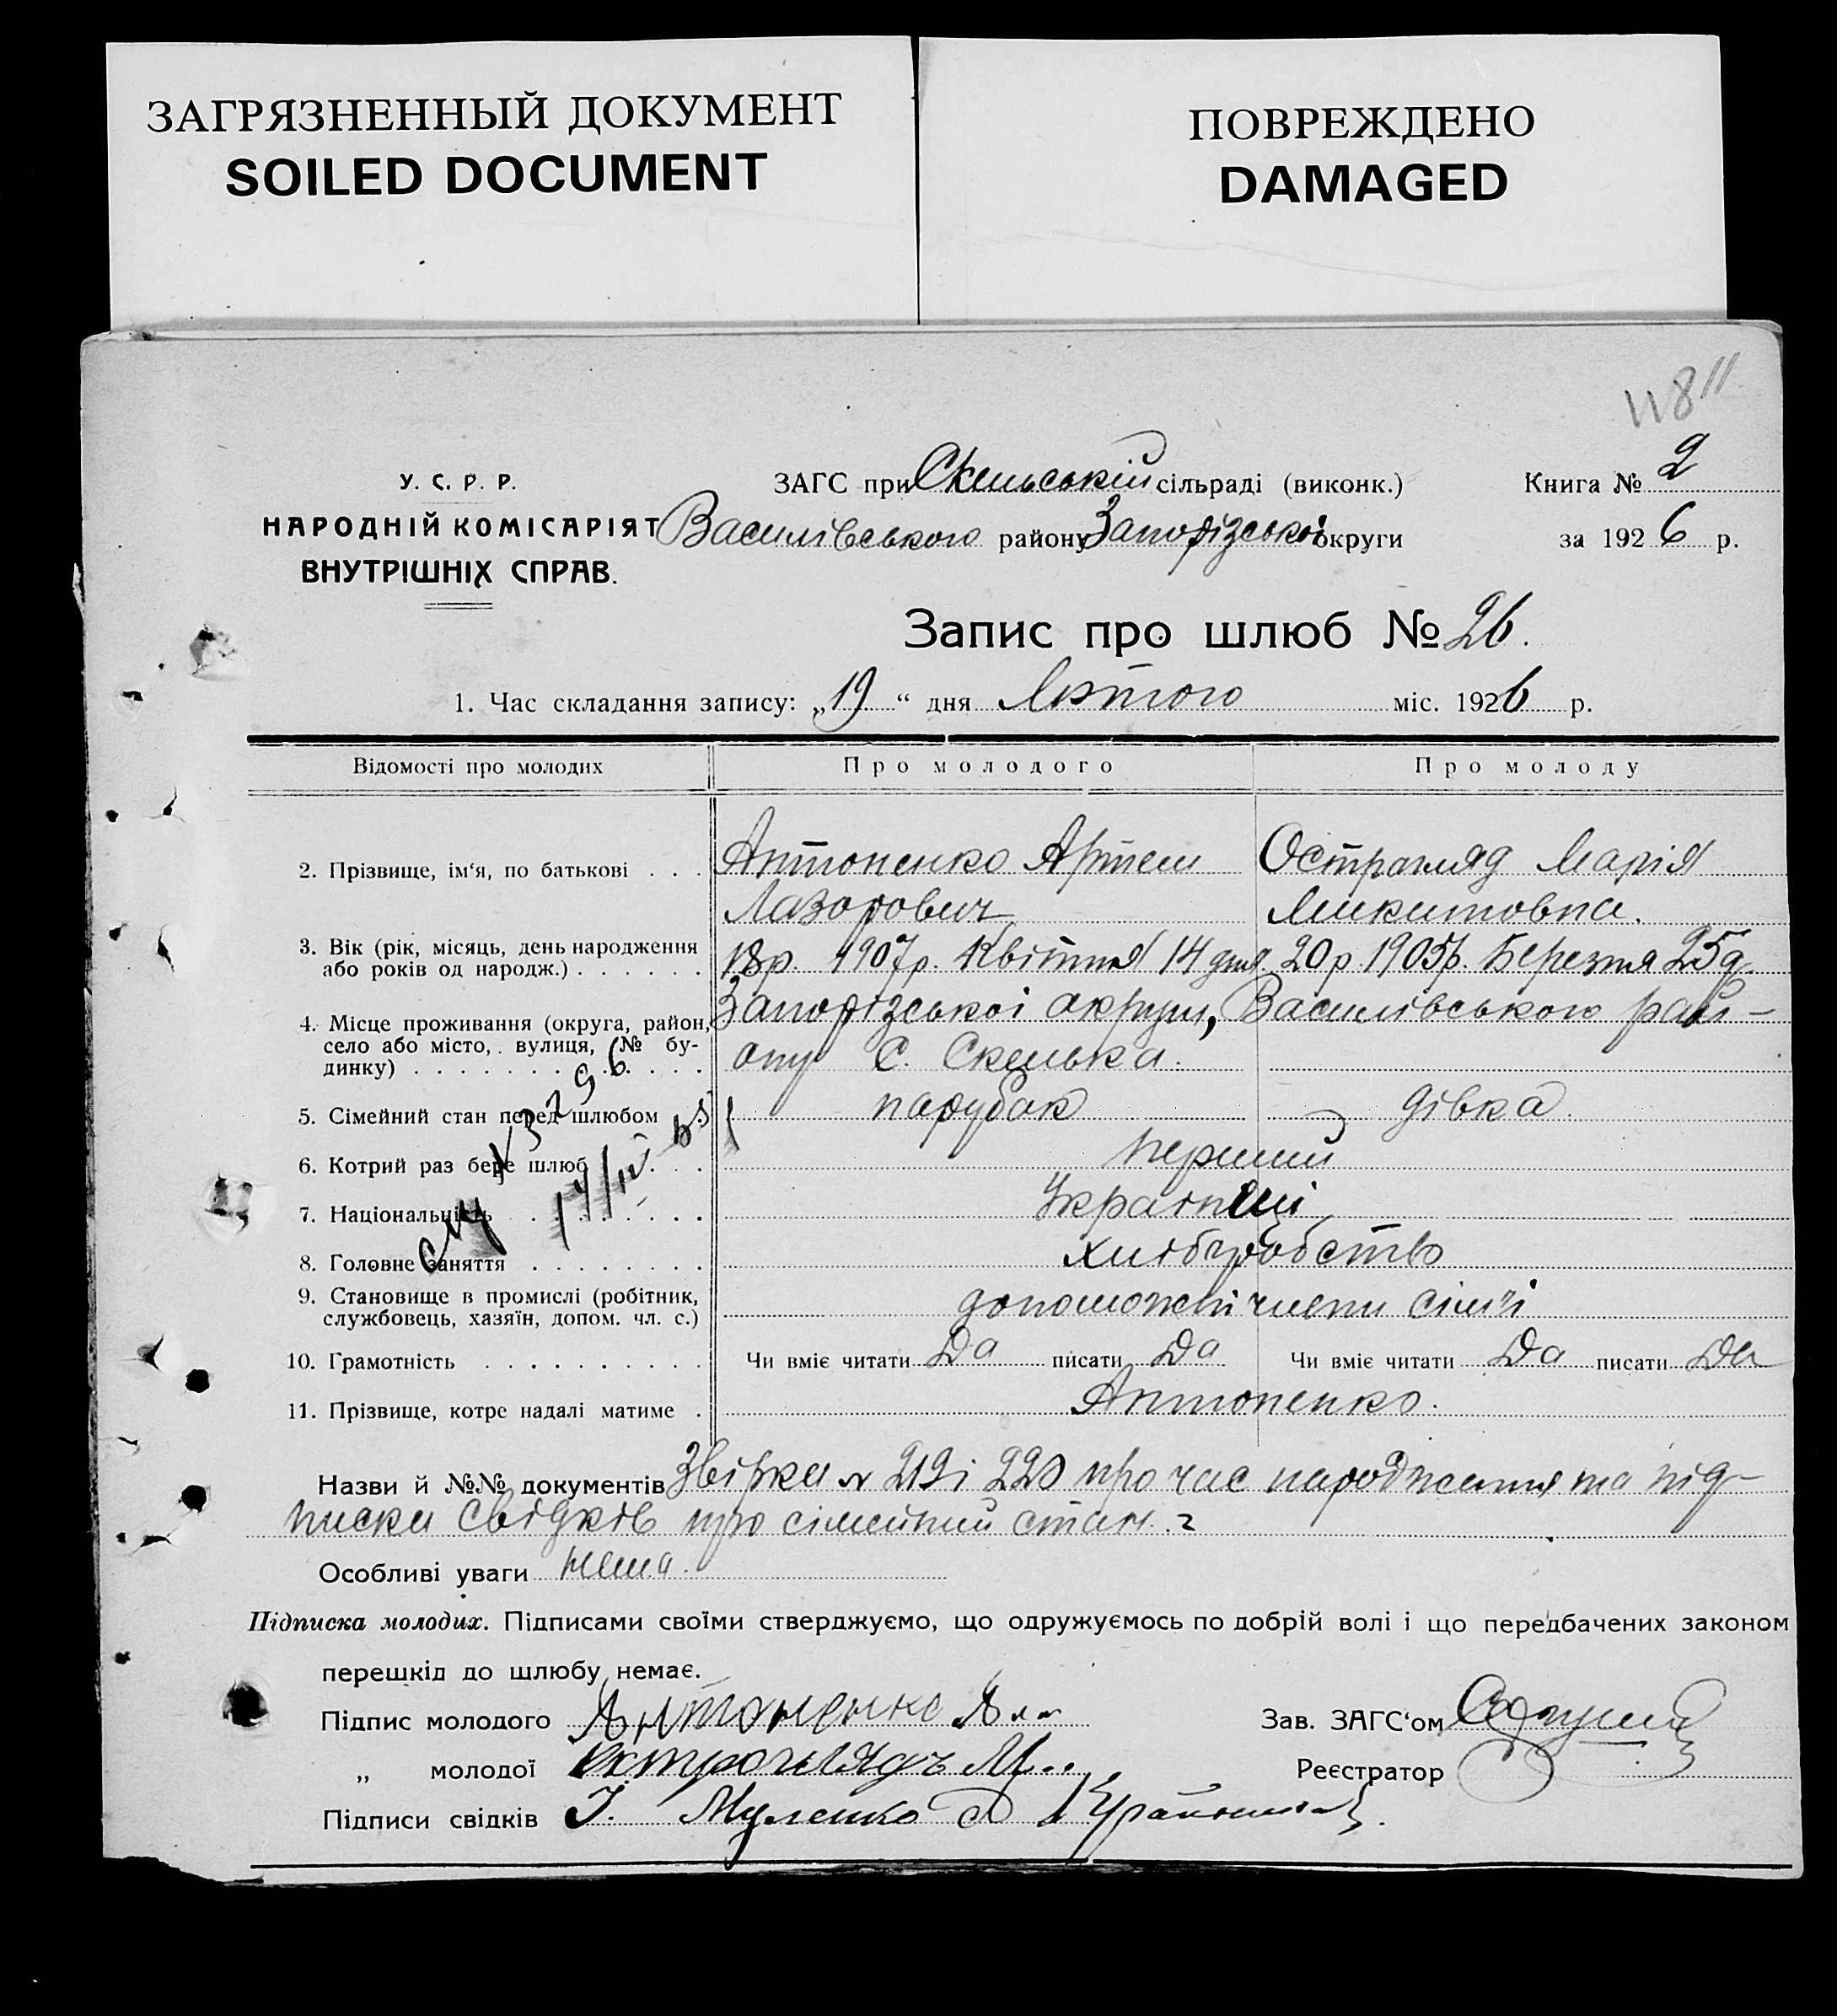 ЗАГРЯЗНЕННЫЙ ДОКУМЕНТ
SOILED DOCUMENT
ПОВРЕЖДЕНО
DAMAGED
118
У. С. Р. Р.
НАРОДНІЙ КОМІСАРІЯТ
ВНУТРІШНІХ СПРАВ.
ЗАГС при Скельській сільраді (виконк.)
Василівського району Запорізської округи
Книга № 2
за 1926 р.
Запис про шлюб № 26.
1. Час складання запису: „19“ дня Лютого міс. 1926 р.
Відомості про молодих Про молодого Про молоду
2. Прізвище, ім‘я, по батькові . . . Антоненко Артем Остропляд Марія
Лазорович Микитовна.
3. Вік (рік, місяць, день народження
або років од народж.) . . . . . . 18р. 1907р. Квітня 14 дня. 20р. 1905р. Березня 25д.
4. Місце проживання (округа, район,
село або місто, вулиця, № бу-
динку) . . . . . . . . . . . .
Запорізської округи, Василівського рай-
ону С. Скелька.
5. Сімейний стан перед шлюбом парубак дівка.
6. Котрий раз бере шлюб . . . перший
7. Національність . . . . . . . . Українці
8. Головне заняття . . . . . . . . хліборобство
9. Становище в промислі (робітник,
службовець, хазяїн, допом. чл. с.) допоможні члени сім'ї
10. Грамотність . . . . . . . . . . Чи вміє читати Да писати Да Чи вміє читати Да писати Да
11. Прізвище, котре надалі матиме . Антоненко.
Назви й №№ документів Звірки № 219 і 220 про час народження та під-
писки свідків про сімейний стан.
Особливі уваги нема.
Підписка молодих. Підписами своїми стверджуємо, що одружуємось по добрій волі і що передбачених законом
перешкід до шлюбу немає.
Підпис молодого Антоненко
Зав. ЗАГС‘ом
„ молодої М..
Реєстратор
Підписи свідків І.